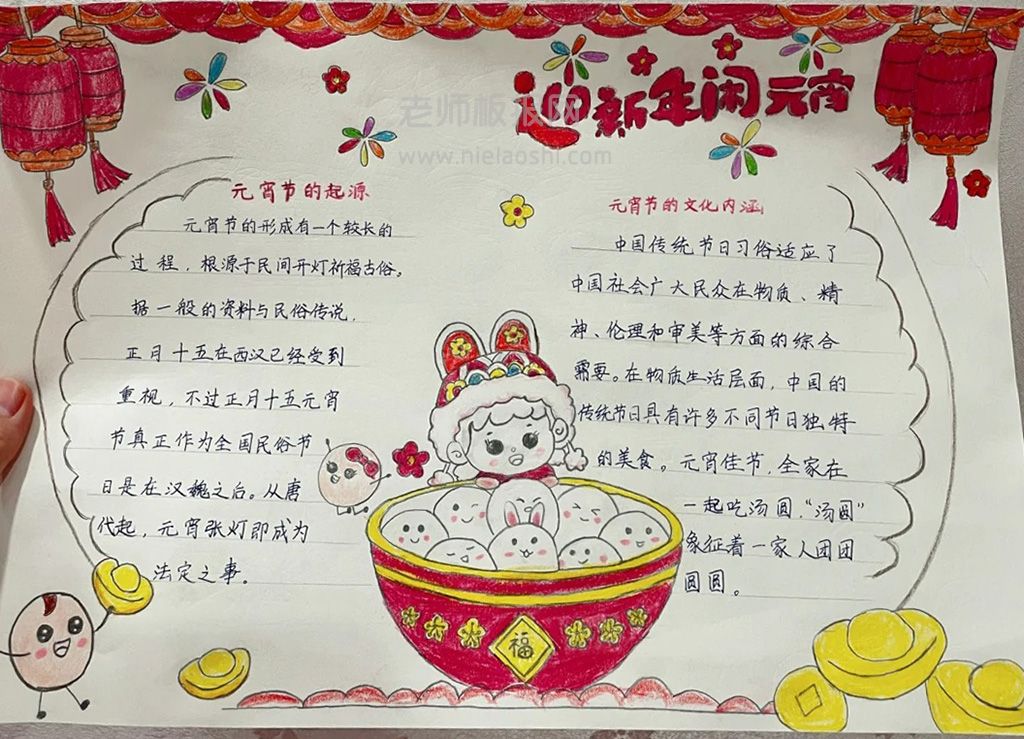 迎新年闹元宵
老师板报网
www.nielaoshi.com
元宵节的起源
元宵节的形成有一个较长的
过程，根源于民间开灯祈福古俗。
据一般的资料与民俗传说，
正月十五在西汉已经受到
重视，不过正月十五元宵
节真正作为全国民俗节
日是在汉魏之后。从唐
代起，元宵张灯即成为
法定之事。
元宵节的文化内涵
中国传统节日习俗适应了
中国社会广大民众在物质、精
神、伦理和审美等方面的综合
需要。在物质生活层面，中国的
传统节日具有许多不同节日独特
的美食。元宵佳节，全家在
一起吃汤圆，“汤圆”
象征着一家人团团
圆圆。
福